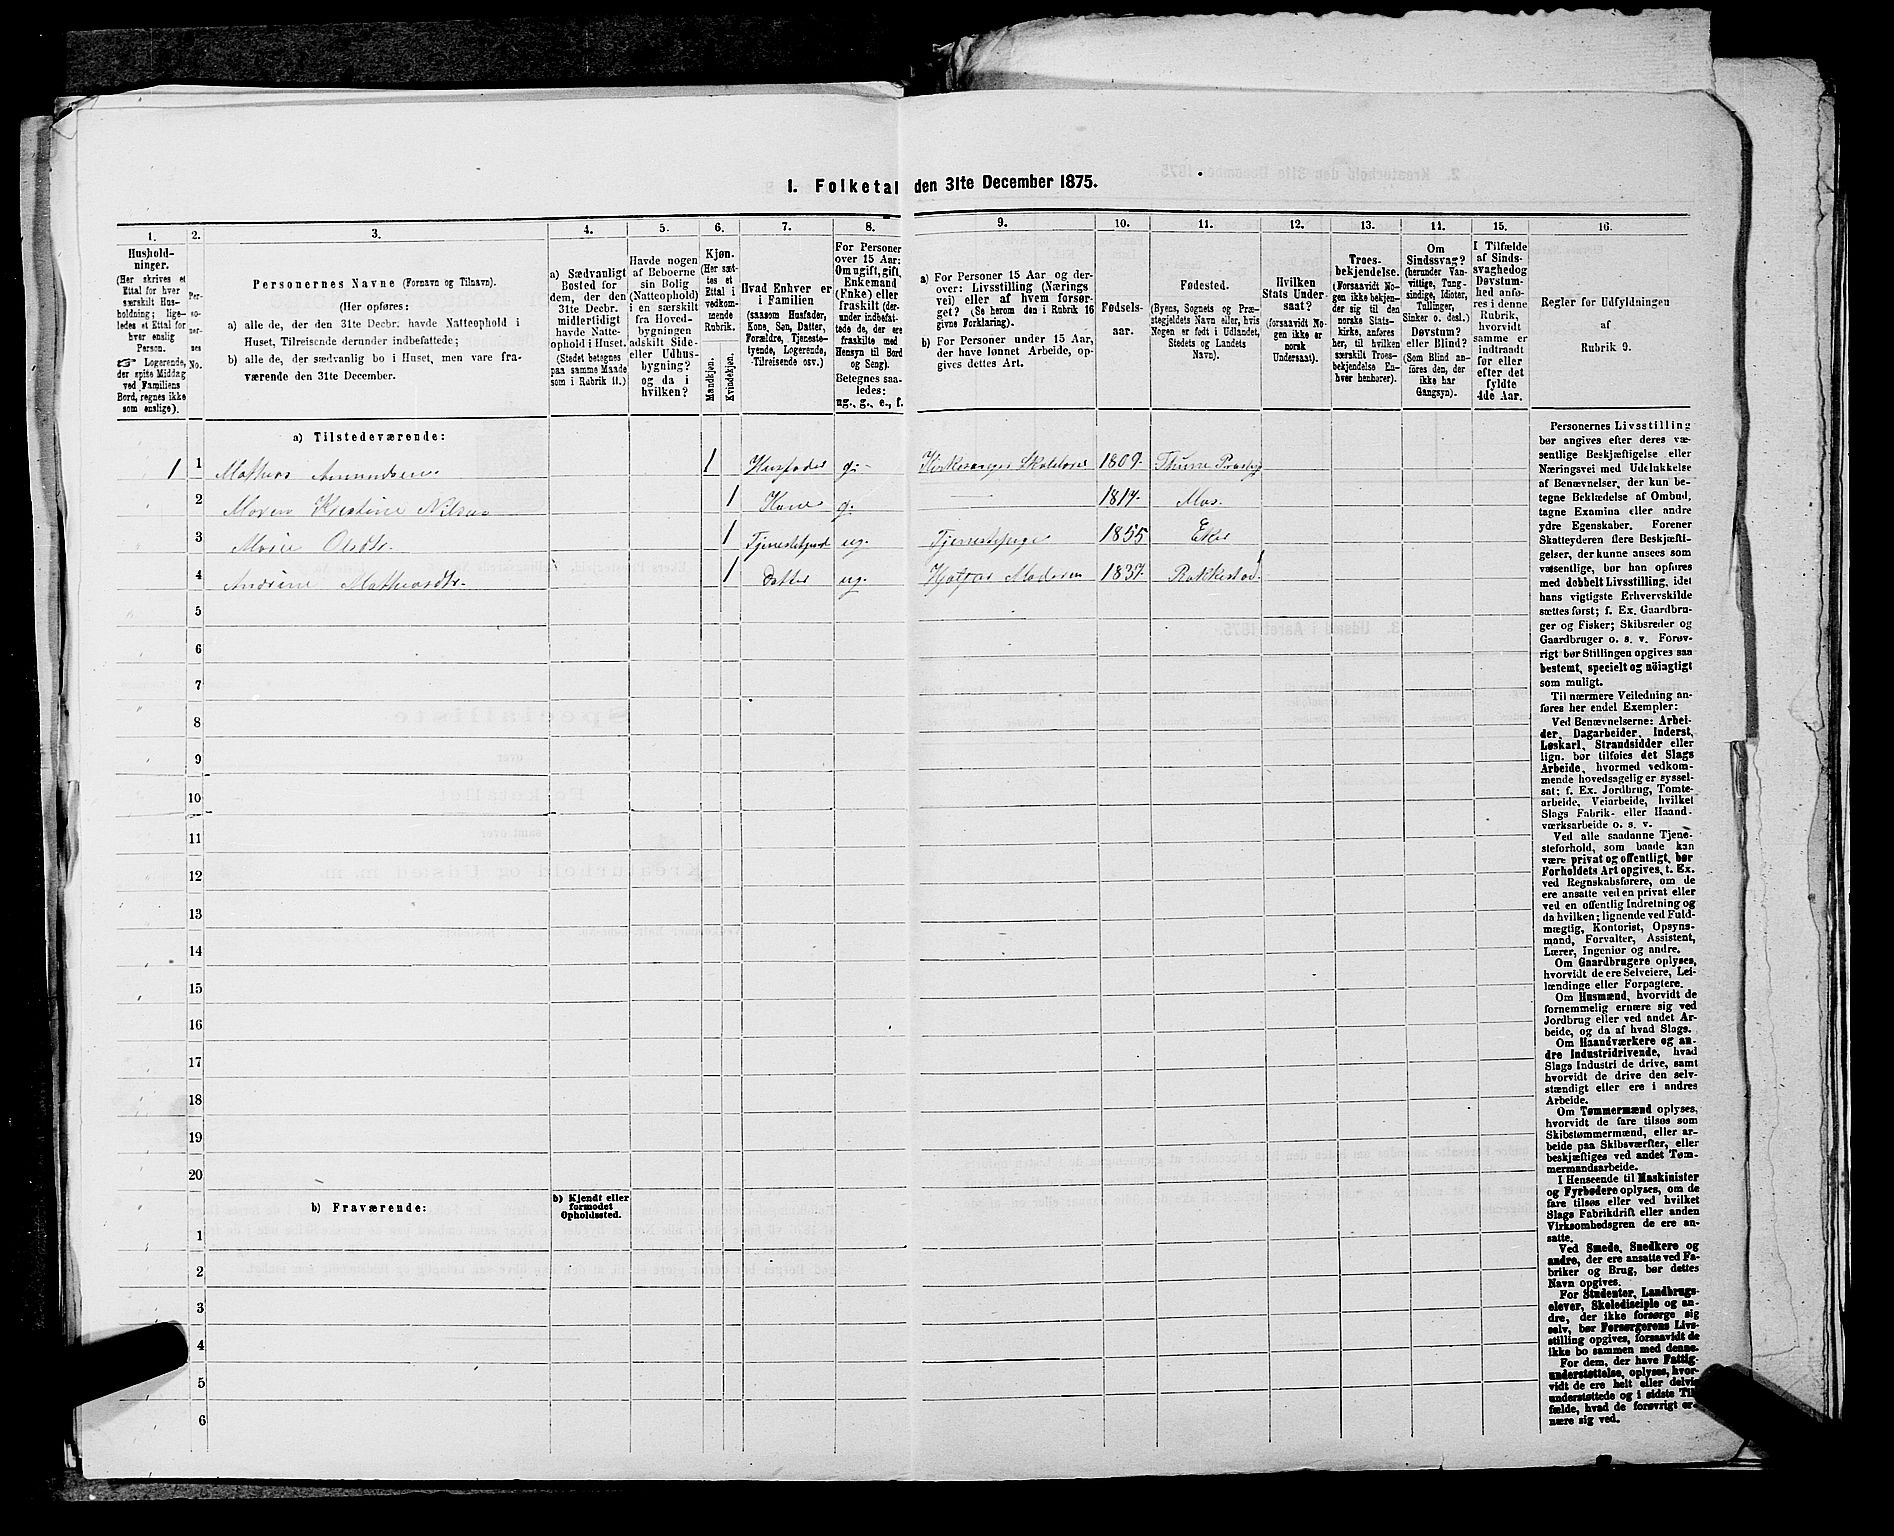 1. Folketal den 31te December 1875.
1.
Hushold-
ninger.
(Her skrives et
Ettal for hver
særskilt Hus-
holdning; lige-
ledes et Ettal for
hver enslig
Person.
☞ Logerende,
der spise Middag
ved Familiens
Bord, regnes ikke
som enslige).
2.
Per-
so-
ner-
nes
No.
3.
Personernes Navne (Fornavn og Tilnavn).
(Her opføres:
a) alle de, der den 31te Decbr. havde Natteophold i
Huset, Tilreisende derunder indbefattede;
b) alle de, der sædvanlig bo i Huset, men vare fra-
værende den 31te December.
4.
a) Sædvanligt
Bosted for
dem, der den
31te Decbr.
midlertidigt
havde Natte-
ophold i Huset.
(Stedet betegnes
paa samme Maade
som i Rubrik 11.)
5.
Havde nogen
af Beboerne
sin Bolig
(Natteophold)
i en særskilt
fra Hoved-
bygningen
adskilt Side-
eller Udhus-
bygning?
og da i
hvilken?
6.
Kjøn.
(Her sæt-
tes et
Ettal i
vedkom-
mende
Rubrik.
Mandkjøn.
Kvindekjøn.
7.
Hvad Enhver er
i Familien
(saasom Husfader,
Kone, Søn, Datter,
Forældre, Tjeneste-
tyende, Logerende,
Tilreisende osv.)
8.
For Personer
over 15 Aar:
Om ugift, gift,
Enkemand
(Enke) eller
fraskilt (der-
under indbefat-
tede de, der ere
fraskilte med
Hensyn til Bord
og Seng).
Betegnes saa-
ledes:
ug., g., e., f.
9.
a) For Personer 15 Aar og der-
over: Livsstilling (Nærings
vei) eller af hvem forsør-
get? (Se herom den i Rubrik 16
givne Forklaring).
b) For Personer under 15 Aar,
der have lønnet Arbeide, op-
gives dettes Art.
10.
Fødsels-
aar.
11.
Fødested.
(Byens, Sognets og Præ-
stegjeldets Navn eller, hvis
Nogen er født i Udlandet,
Stedets og Landets
Navn).
12.
Hvilken
Stats Under-
saat?
(forsaavidt No-
gen ikke er
norsk
Undersaat).
13.
Troes-
bekjendelse.
(Forsaavidt No-
gen ikke bekjen-
der sig til den
norske Stats-
kirke, anføres
her, til hvilken
særskilt Troes-
bekjendelse En-
hver henhører).
14.
Om
Sindssvag?
(herunder Van-
vittige, Tung-
sindige, Idioter,
Tullinger,
Sinker o. desl.)
Døvstum?
eller Blind?
(Som Blind an-
føres den, der
ikke har
Gangsyn).
15.
I Tilfælde
af Sinds-
svaghed og
Døvstum-
hed anfø-
res i denne
Rubrik,
hvorvidt
samme er
indtraadt
før eller
efter det
fyldte
4de Aar.
16.
Regler for Udfyldningen
af
Rubrik 9.
a) Tilstedeværende:
1 1 Mathias Amundsen 1 Husfader g. Kirkesanger Skolelærer 1809 Thune Præstgj
2 Maren Kristine Nilsen 1 Kone g. 1817 Mos.
3 Marie Olsdtr. 1 ug. 1855
4 Andrine Mathiasdtr. 1 datter ug. 1837 Rakkestad.
5
6
7
8
9
10
11
12
13
14
15
16
17
18
19
20
b) Fraværende:
b) Kjendt eller
formodet
Opholdssted.
1
2
3
4
5
6
Personernes Livsstilling
bør angives efter deres væ-
sentlige Beskjæftigelse eller
Næringsvei med Udelukkelse
af Benævnelser, der kun be-
tegne Beklædelse af Ombud,
tagne Examina eller andre
ydre Egenskaber. Forener
Skatteyderen flere Beskjæfti-
gelser, der kunne ansees som
væsentlige, bør han opføres
med dobbelt Livsstilling, idet
hans vigtigste Erhvervskilde
sættes først; f. Ex. Gaardbru-
ger og Fisker; Skibsreder og
Gaardbruger o. s. v. Forøv-
rigt bør Stillingen opgives saa
bestemt, specielt og nöiagtigt
som muligt.
Til nærmere Veiledning an-
føres her endel Exempler:
Ved Benævnelserne: Arbei-
der, Dagarbeider, Inderst,
Løskarl, Strandsidder eller
lign. bør tilføies det Slags
Arbeide, hvormed vedkom-
mende hovedsagelig er syssel-
sat; f. Ex. Jordbrug, Tomte-
arbeide, Veiarbeide, hvilket
Slags Fabrik- eller Haand-
værksarbeide o. s. v.
Ved alle saadanne Tjene-
steforhold, som baade kan
være privat og offentligt, bør
Forholdets Art opgives, t. Ex.
ved Regnskabsførere, om de
ere ansatte ved en privat eller
ved en offentlig Indretning og
da hvilken; lignende ved Fuld-
mægtig, Kontorist, Opsyns-
mand, Forvalter, Assistent,
Lærer, Ingeniør og andre.
Om Gaardbrugere oplyses,
hvorvidt de ere Selveiere, Lei-
lændinge eller Forpagtere.
Om Husmænd, hvorvidt de
fornemmelig ernære sig ved
Jordbrug eller ved andet Ar-
beide, og da af hvad Slags.
Om Haandværkere og an-
dre Industridrivende, hvad
Slags Industri de drive, samt
hvorvidt de drive den selv-
stændigt eller ere i andres
Arbeide.
Om Tømmermænd oplyses,
hvorvidt de fare tilsøs som
Skibstømmermænd, eller ar-
beide paa Skibsværfter, eller
beskjæftiges ved andet Tøm-
mermandsarbeide.
I Henseende til Maskinister
og Fyrbødere oplyses, om de
fare tilsøs eller ved hvilket
Slags Fabrikdrift eller anden
Virksomhedsgren de ere an-
satte.
Ved Smede, Snedkere og
andre, der ere ansatte ved Fa-
briker og Brug, bør dettes
Navn opgives.
For Studenter, Landbrugs-
elever, Skoledisciple og an-
dre, der ikke forsørge sig
selv, bør Forsørgerens Livs-
stilling opgives, forsaavidt de
ikke bo sammen med denne.
For dem, der have Fattig-
understøttelse, oplyses, hvor-
vidt de ere helt eller delvis
understøttede og i sidste Til-
fælde, hvad de forøvrigt er-
nære sig ved.